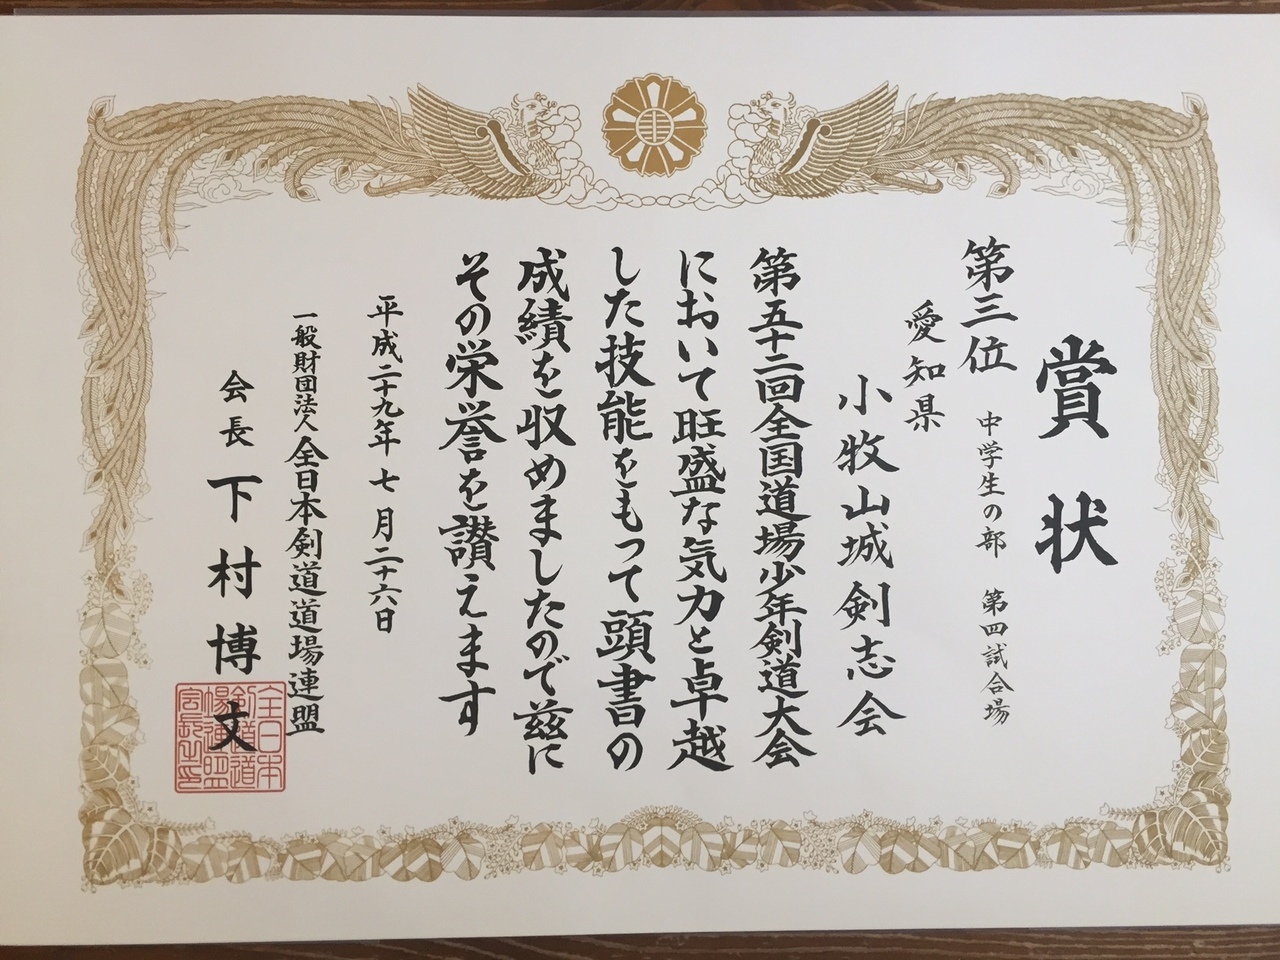 賞状
第三位 中学生の部 第四試合場
愛知県
小牧山城剣志会
第五十二回全国道場少年剣道大会
において旺盛な気力と卓越
した技能をもって頭書の
成績を収めましたので茲に
その栄誉を讃えます
平成二十九年七月二十六日
一般財団法人全日本剣道道場連盟
会長 下村博文
全日本
剣道道
場連盟
会長之印